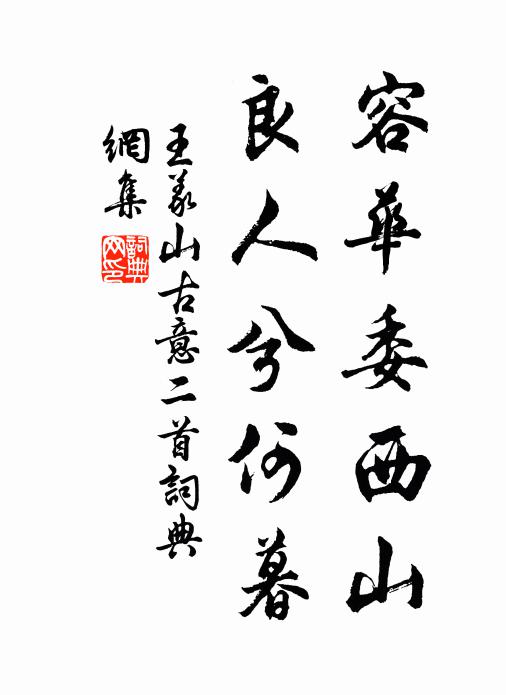 容華委西山
良人兮何暮
王義山古意二首詞典
網集
詞典網印